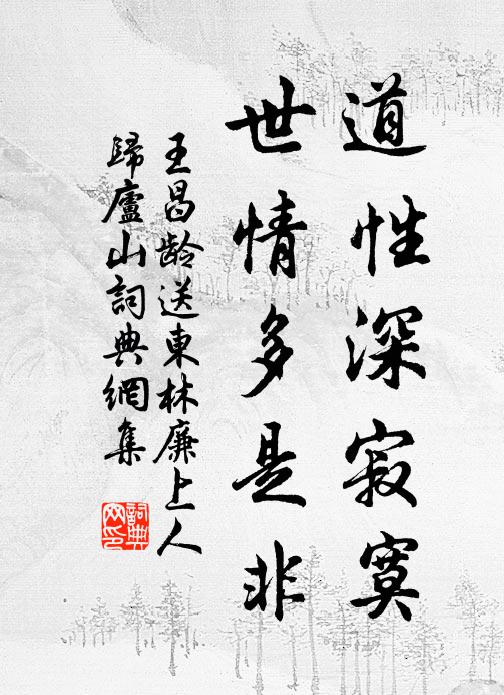 道性深寂寞
世情多是非
王昌龄送東林廉上人
歸廬山詞典網集
詞典
网印